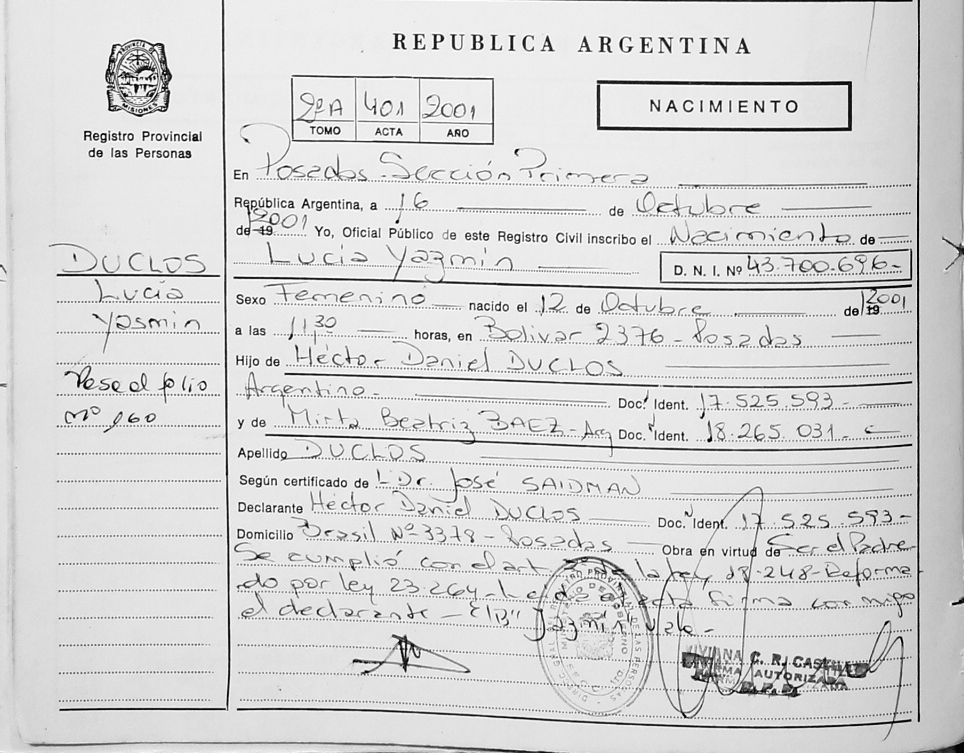 PROVINCIA DE MISIONES
Registro Provincial
de las Personas
REPUBLICA ARGENTINA
2º A 401 2001
TOMO ACTA AÑO
NACIMIENTO
En Posadas Sección Primera
República Argentina, a 16 de Octubre
de 19 2001 Yo, Oficial Público de este Registro Civil inscribo el Nacimiento de
Lucía Yazmín
D. N. I. Nº 43.700.696-
DUCLOS
Lucía
Yasmin
Pase al folio
Nº 160
Sexo Femenino nacido el 12 de Octubre de 19 2001
a las 11,30 horas, en Bolivar 2376 - Posadas
Hijo de Héctor Daniel DUCLOS
Argentino - Doc. Ident. 17.525.593 -
y de Mirta Beatriz BAEZ - Arg Doc. Ident. 18.265.031 -
Apellido DUCLOS
Según certificado de Dr. José SAIDMAN
Declarante Héctor Daniel DUCLOS Doc. Ident. 17.525.593 -
Domicilio Brasil Nº 3378 - Posadas Obra en virtud de Ser el Padre
Se cumplió con el art la ley 18.248 - Reforma
do por ley 23.264 - acta firma conmigo
el declarante - E/B" Jazmín Vale -
VIVIANA C. R.
FIRMA AUTORIZADA